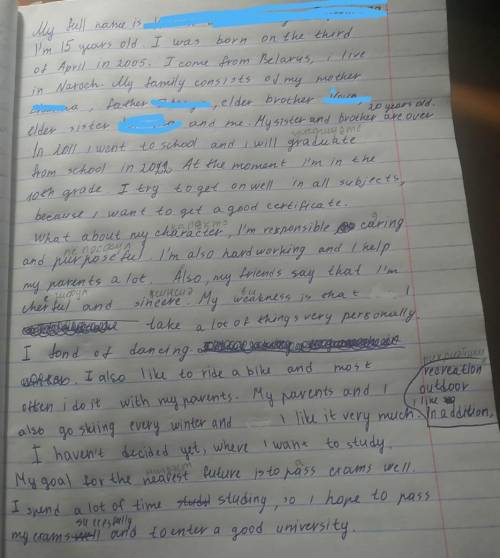 My full name is
I'm 15 years old. I was born on the third
of April in 2005. I come from Belarus, i live
in Naroch. My family consists of my mother
, father , elder brother ,
elder sister and me. My sister and brother are over 20 year old.
In 2011 i went to school and i will graduate
from school in 2022. At the moment I'm in the
10th grade I try to get on well in all subjects,
because i want to get a good certificate.
What about my character, I'm responsible, caring
and purposeful. I'm also hardworking and I help
my parents a lot. Also, my friends say that I'm
cherful and sincere. My weakness is that I
take a lot of things very personally.
I fond of dancing.
. I also like to ride a bike and most
often i do it with my parents. My parents and i
also go skiing every winter and i like it very much.
recreation
outdoor
i like
In addition,
I haven't decided yet, where i want to study.
My goal for the nearest future is to pass exams well.
I spend a lot of time studing, so i hope to pass
my exams succesfully and to enter a good university.